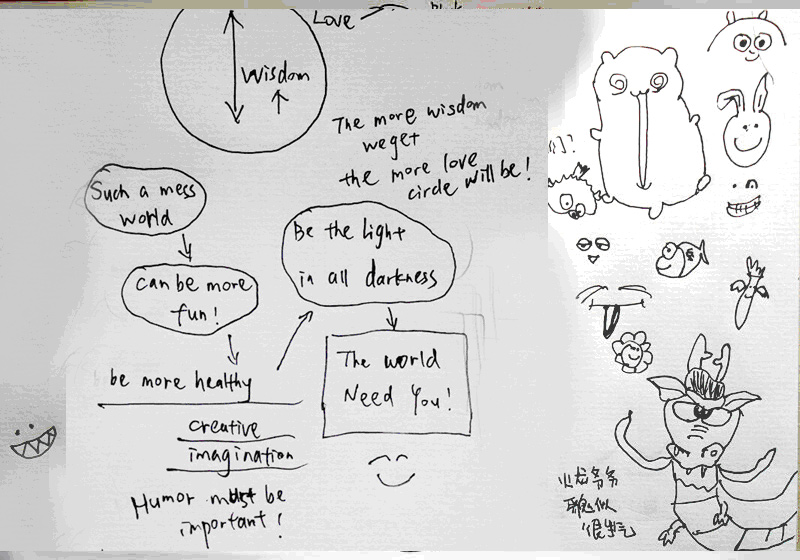 Love
Wisdom
The more wisdom
we get
the more love
circle will be!
Such a mess
world
can be more
fun!
be more healthy
creative
imagination
Humor must be
important!
Be the light
in all darkness
The world
Need You!
们?
火龙爷爷
很生气